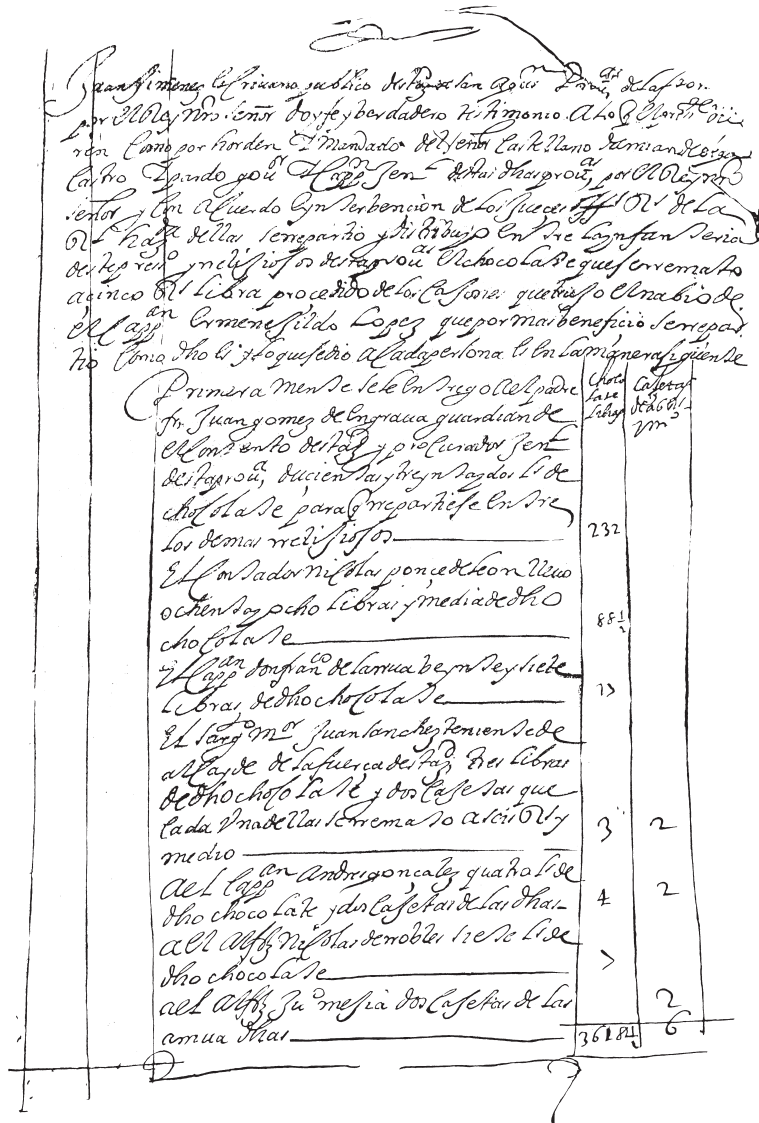 Juan Ximenez escrivano publico desta ciud de san Agus Provas de la flor
por el Rey nro señor doy fee y berdadero testimonio A los q el presente vie
ren como por horden Y mandado del señor castellano damian de
castro Y pardo gouor Y cappn Jenl destas dhas prouas por el Rey nro
señor y con acuerdo e ynterbencion de los jueces offs Rs de la
Rl hazda dellas se rrepartio y distribuyo entre la ynfanteria
deste presio y rrelijiosos desta proua el chocolate que se rremato
a cinco Rs libra procedido de los cajones que trujo el nabio de
el cappan Ermenejildo Lopez que por mas beneficio se rrepar
tio como dho es y lo que se dio a cada persona es en la manera siguiente
Primeramente se le entrego al padre
fr. Juan gomez de engraua guardian de
el conbento desta ciud y procurador Jenl
desta proua, ducientas y treynta y dos ls de
chocolate para q rrepartiese entre
los demas rrelijiosos
El contador nicolas ponce de leon lleuo
ochenta y ocho libras y media de dho
chocolate
El cappan don franco de la rrua beynte y siete
libras de dho chocolate
El sargto mor Juan sanchez teniente de
alcayde de la fuerça desta ciud tres libras
de dho chocolate y dos cajetas que
cada una dellas se rremato a seis Rs y
medio
a el cappan Andres gonçalez quatro ls de
dho chocolate y dos cajetas de las dhas
a el Alfz Nicolas de rrobles siete ls de
dho chocolate
a el alfz Juo mesia dos cajetas de las
dhas
choco
late
libras
cajetas
de a 6 Rs
232
88 1/2
3 2
4 2
7
2
6